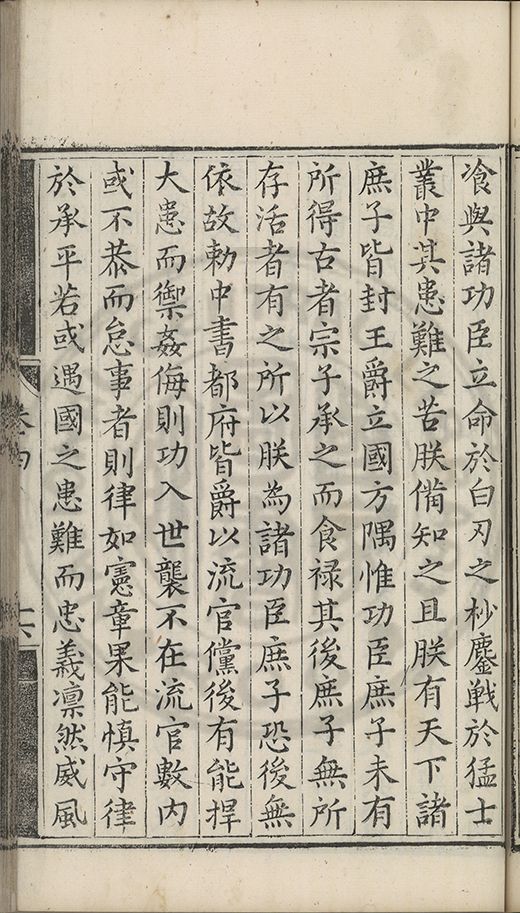 飡與諸功臣立命於白刃之杪鏖戦於猛士
叢中其患難之苦朕備知之且朕有天下諸
庶子皆封王爵立國方隅惟功臣庶子未有
所得古者宗子承之而食禄其後庶子無所
存活者有之所以朕為諸功臣庶子恐後無
依故勅中書都府皆爵以流官儻後有能捍
大患而禦姦侮則功入世襲不在流官數内
或不恭而怠事者則律如憲章果能慎守律
於承平若或遇國之患難而忠義凛然威風